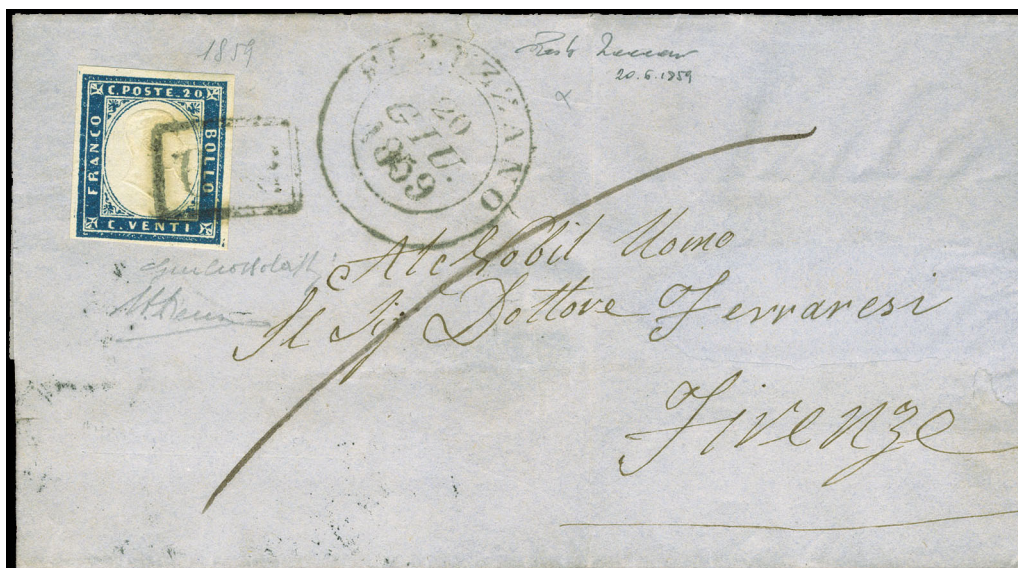 1859
20.6.1859
C. POSTE. 20
FRANCO
BOLLO
C. VENTI
FIVIZZANO
20
GIU.
1859
Al Nobil Uomo
Il Sig Dottore Ferraresi
Firenze